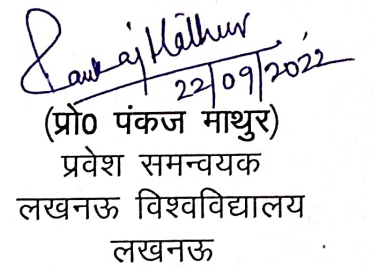 Pankaj Mathur
22/09/2022
(प्रो0 पंकज माथुर)
प्रवेश समन्वयक
लखनऊ विश्वविद्यालय
लखनऊ